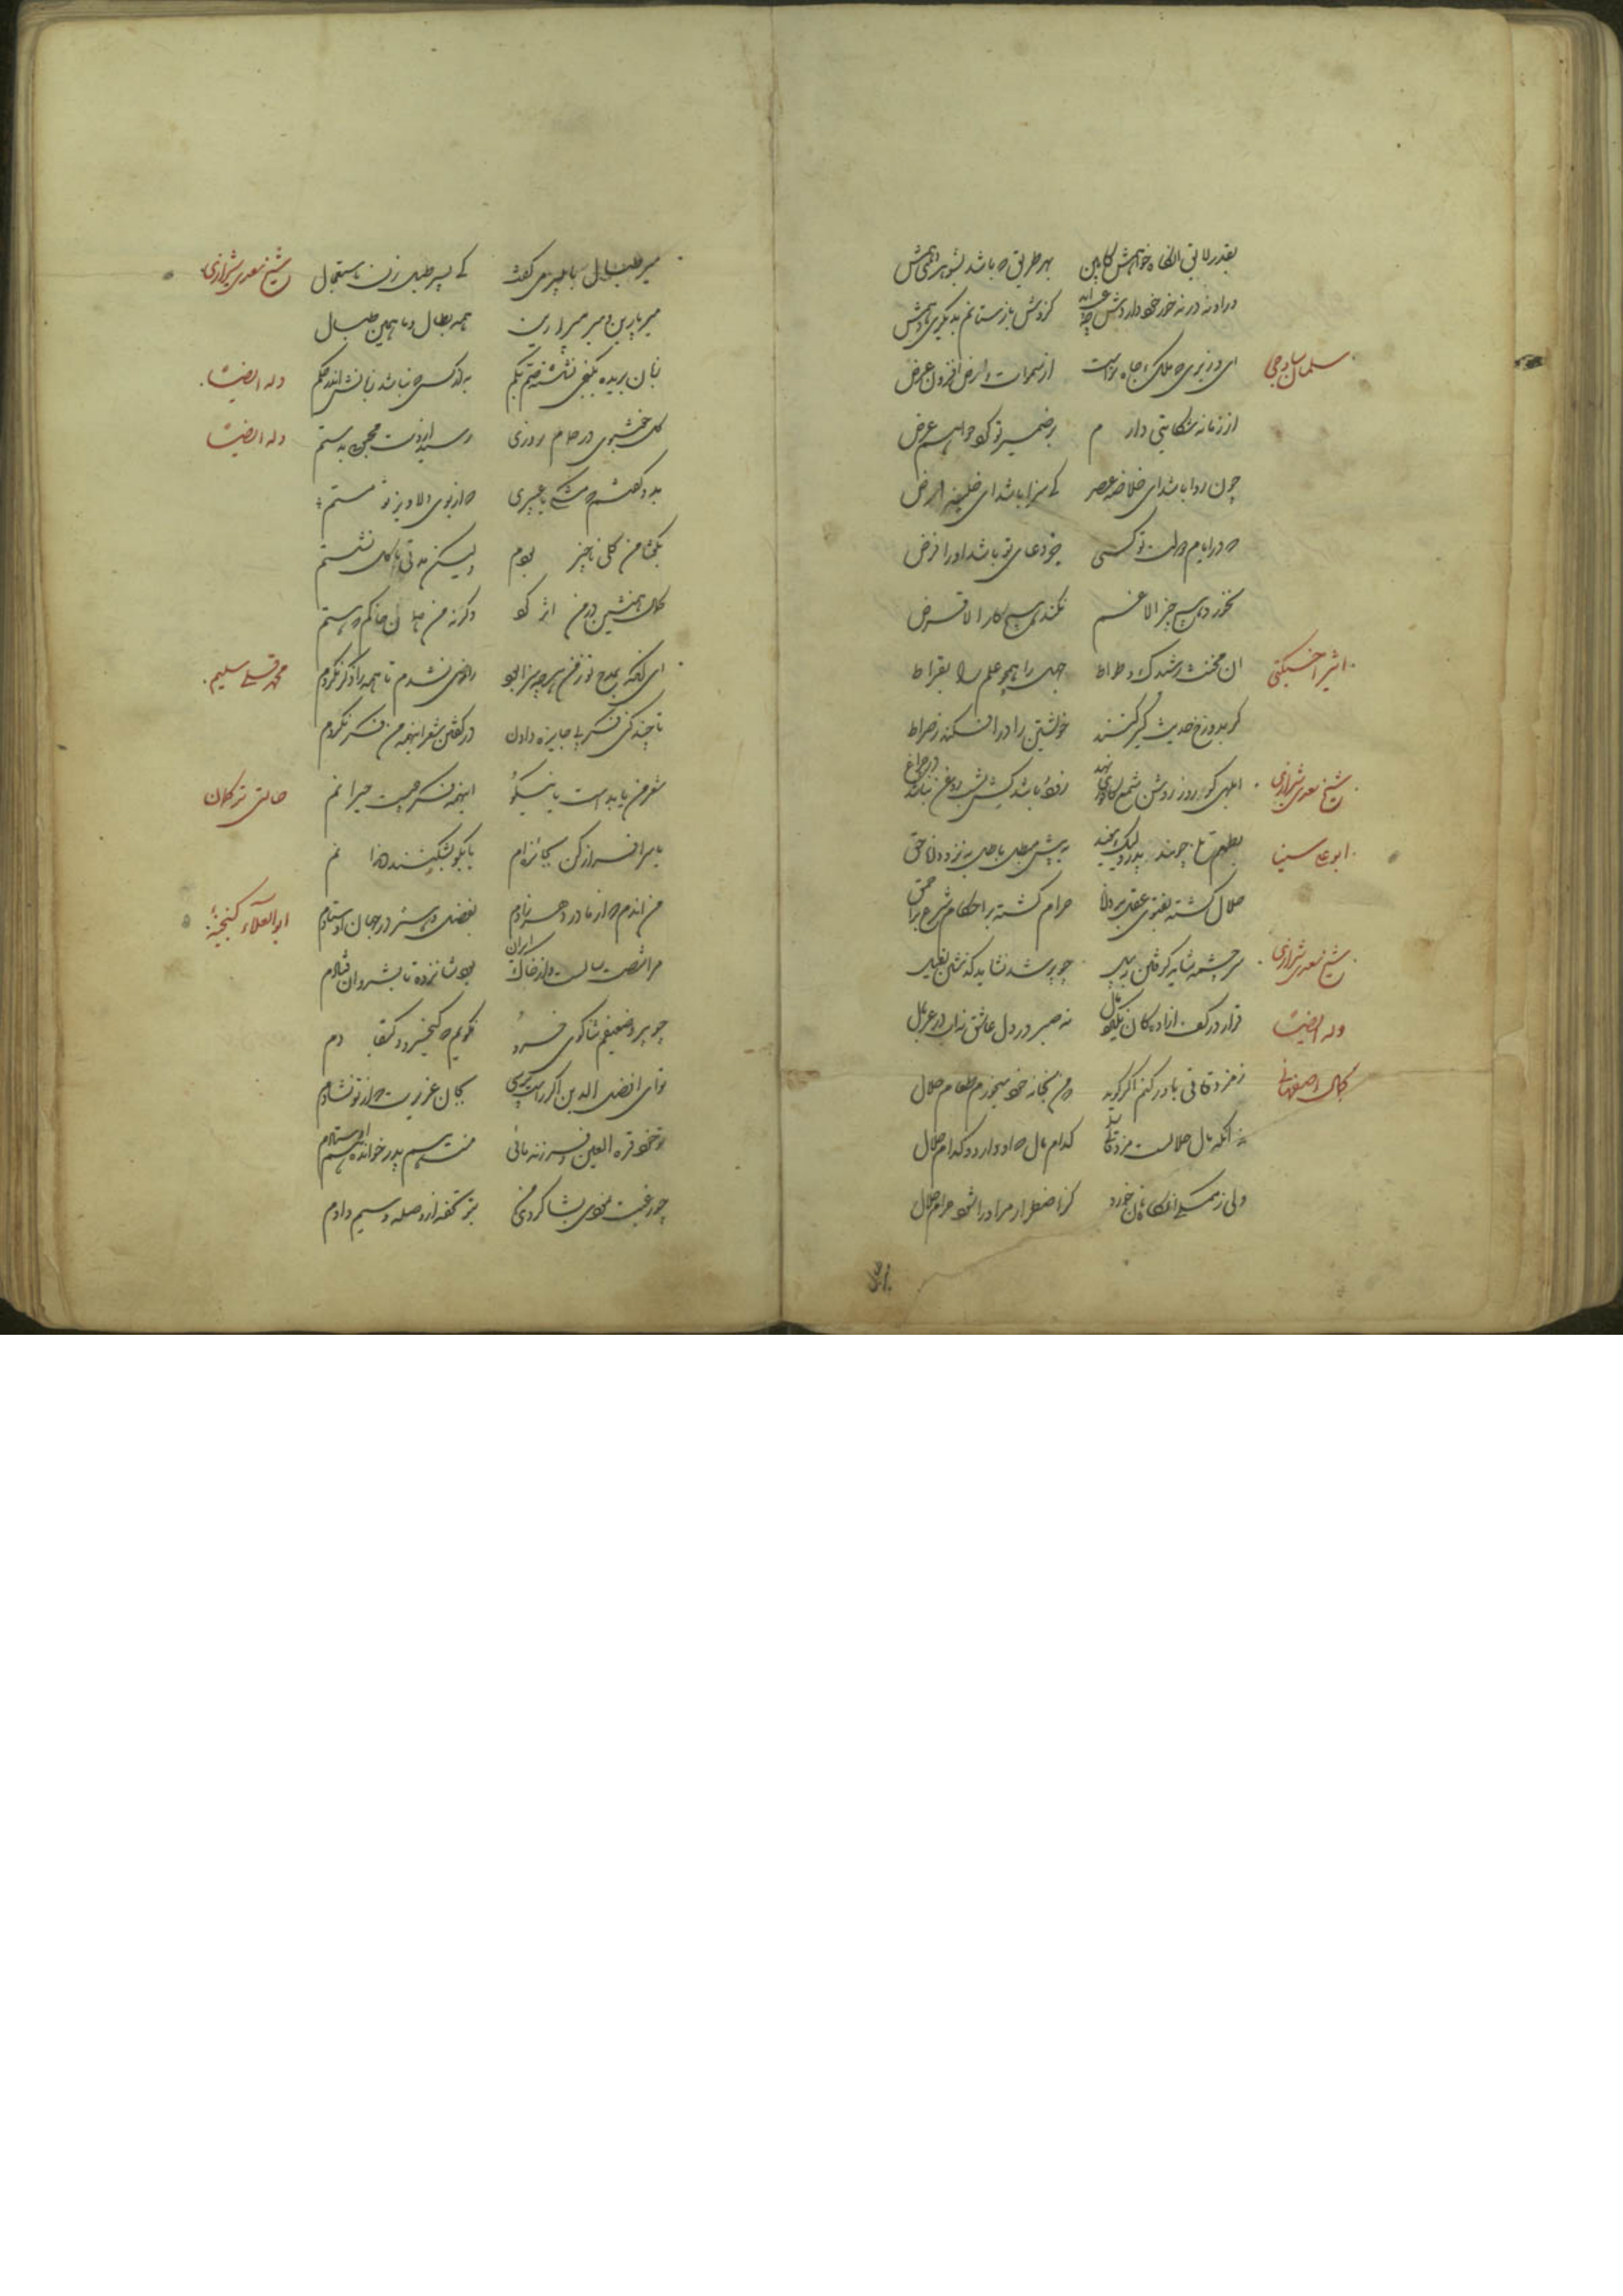 بقدر لایق انگاه خواهش کابین بهر طریق که باشد بشوهری دهمش
سلمان ساوجی ای وزیری که ملک و جاه تراست از سموات و ارض افزون عرض
از زمانه شکایتی دارم بر ضمیر تو کرد خواهم عرض
چون روا باشد ای خلاصه عصر کی سزا باشد ای خلیفه ارض
که در ایام دولت تو کسی جز دعای تو باشد او را فرض
نخورد هیچ جز الا غم نکند هیچ کار الا قرض
اثیر اخسیکتی ان مخنث رشیدک وطواط جهل را همچو علم را بقراط
گر بدوزخ حدیث کیر کنند خویشتن را در افکند ز صراط
شیخ سعدی شیرازی ابلهی کو روز روشن شمع کافوری نهد زود باشد کش بشب روغن نباشد در چراغ
ابو علی سینا بطعم تلخ چو پند پدر ولیک مفید به پیش مبطل باطل به نزد دانا حق
حلال گشته بفتوی عقل بر دانا حرام گشته بر احکام شرع بر احمق
شیخ سعدی شیرازی سر چشمه شاید گرفتن به بیل چو پر شد نشاید گذشتن بفیل
وله ایضا قرار در کف ازادگان نگیرد مال نه صبر در دل عاشق نه اب در غربال
کمال اصفهانی ز مزدقانی باور کنم اگر گوید که من بخانه خود میخورم طعام حلال
نه انکه مال حلالست مزدقانی را کدام مال که او دارد و کدام حلال
ولی ز ممسکی انگاه نان خورد کز اضطرار مر او را شود حرام حلال
شیخ سعدی شیرازی میر طبال با پسر می گفت کای پسر طبل زن باستعجال
میر بارین و میر میرارین همه بطال و ما همین طبال
وله ایضا زبان بریده بکنجی نشسته صم بکم به از کسی که نباشد زبانش اندر حکم
وله ایضا گلی خوشبوی در حمام روزی رسید از دست محبوبی بدستم
بدو گفتم که مشکی یا عبیری که از بوی دلاویز تو مستم
بگفتا من گلی ناچیز بودم ولیکن مدتی با گل نشستم
کمال همنشین در من اثر کرد وگرنه من همان خاکم که هستم
محمد قلی سلیم ای گفته بمدح تو ز من هر چه سزا بود راضی نشدم تا همه را ذکر نکردم
تا چند کنی فکر پی جایزه دادن در گفتن شعر اینهمه من فکر نکردم
حالتی ترکمان شعر من یا بد است یا نیکو اینهمه فکر چیست حیرانم
یا سرافراز کن بجائزه ام یا بگو بشکنند دندانم
ابو العلاء گنجه من اندم که از مادر دهر زادم بفضل و هنر در جهان اوستادم
مرا شصت سالست و از خاک ایران بود شانزده تا بشروان فتادم
چو پیر و ضعیفم ثناگوی خسرو نگویم که کیخسرو و کیقبادم
تو ای افضل الدین اگر راست پرسی بجان عزیزت که از تو نشادم
تو خود قرة العین و فرزند مائی منت هم پدر خوانده هم اوستادم
چو رغبت نمودی بشاگردی من بتو تحفه از وصله و سیم دادم